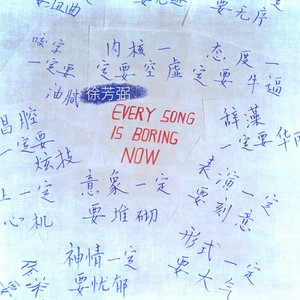 要无序
咬字
一定要
油腻
内核一
定要空虚
态度一
定要牛逼
徐芳弼
EVERY SONG
IS BORING
NOW
辞藻
一定要华丽
唱腔
一定要
炫技
意象一定
要堆砌
表演一定
要刻意
心机
神情一定
要忧郁
形式一定
要大气